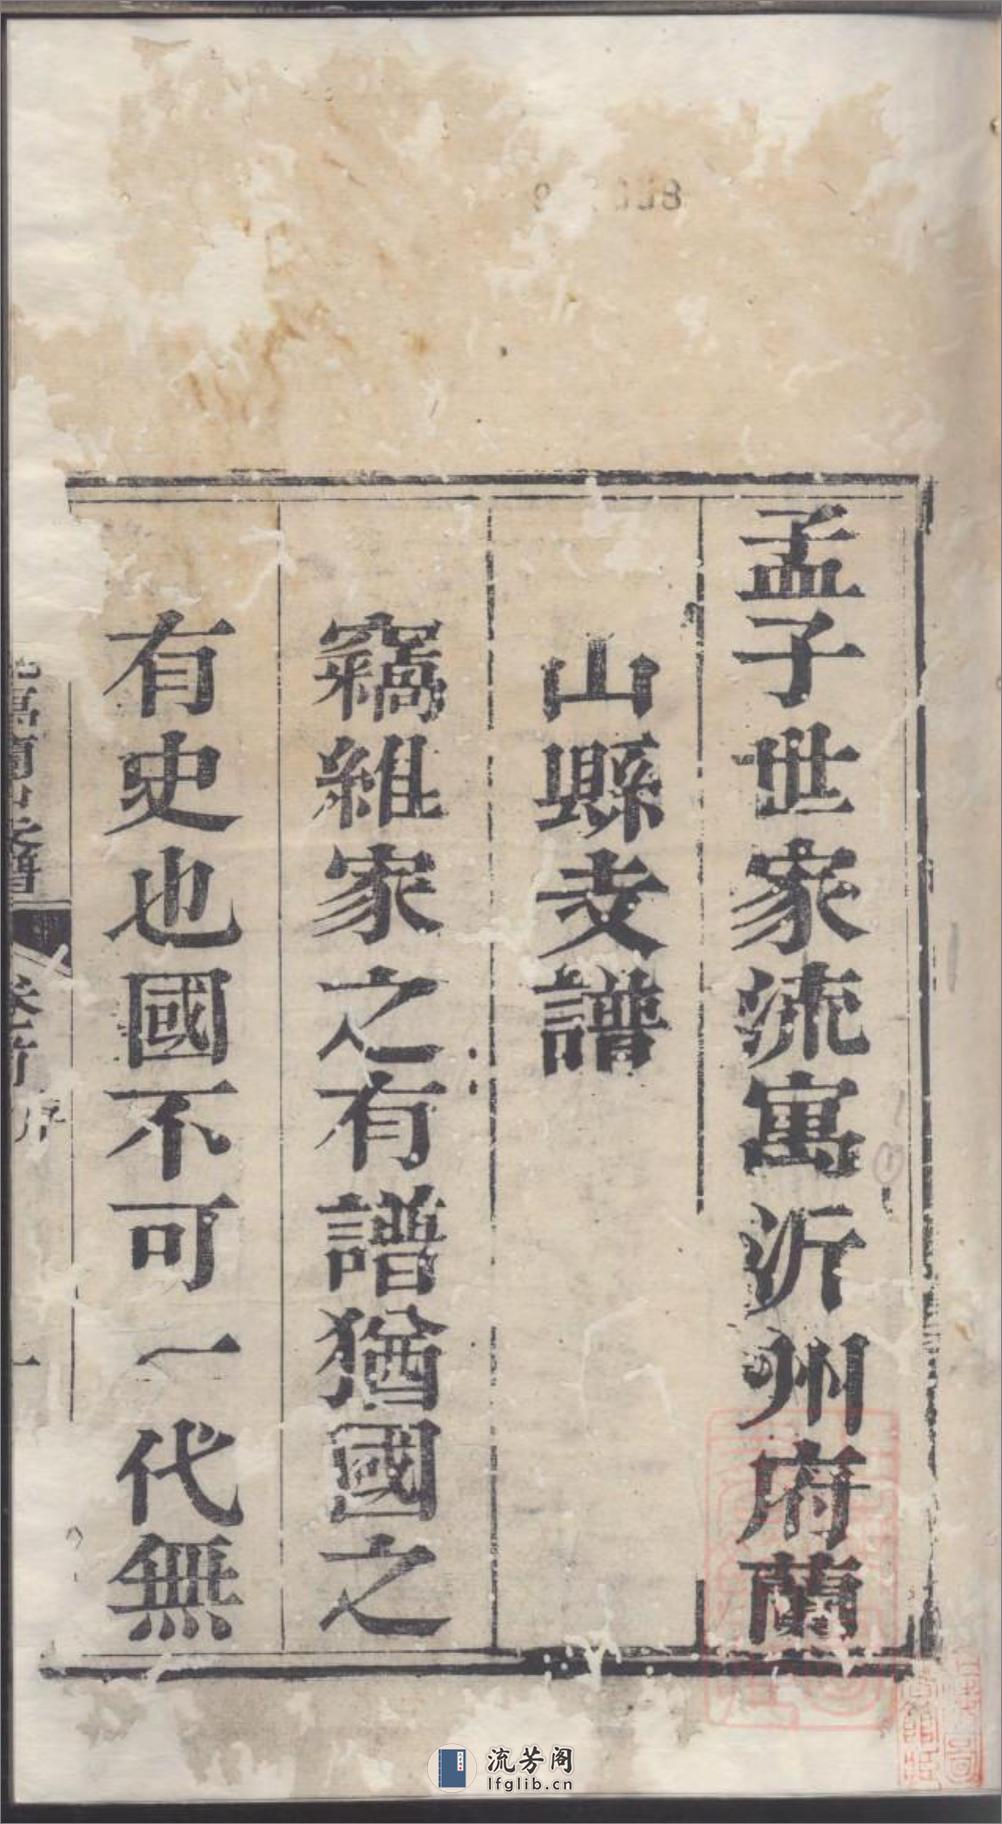 孟子世家流寓沂州府蘭
山縣支譜
竊維家之有譜猶國之
有史也國不可一代無
寓蘭山支譜
卷首
序
一
流芳阁
lfglib.cn